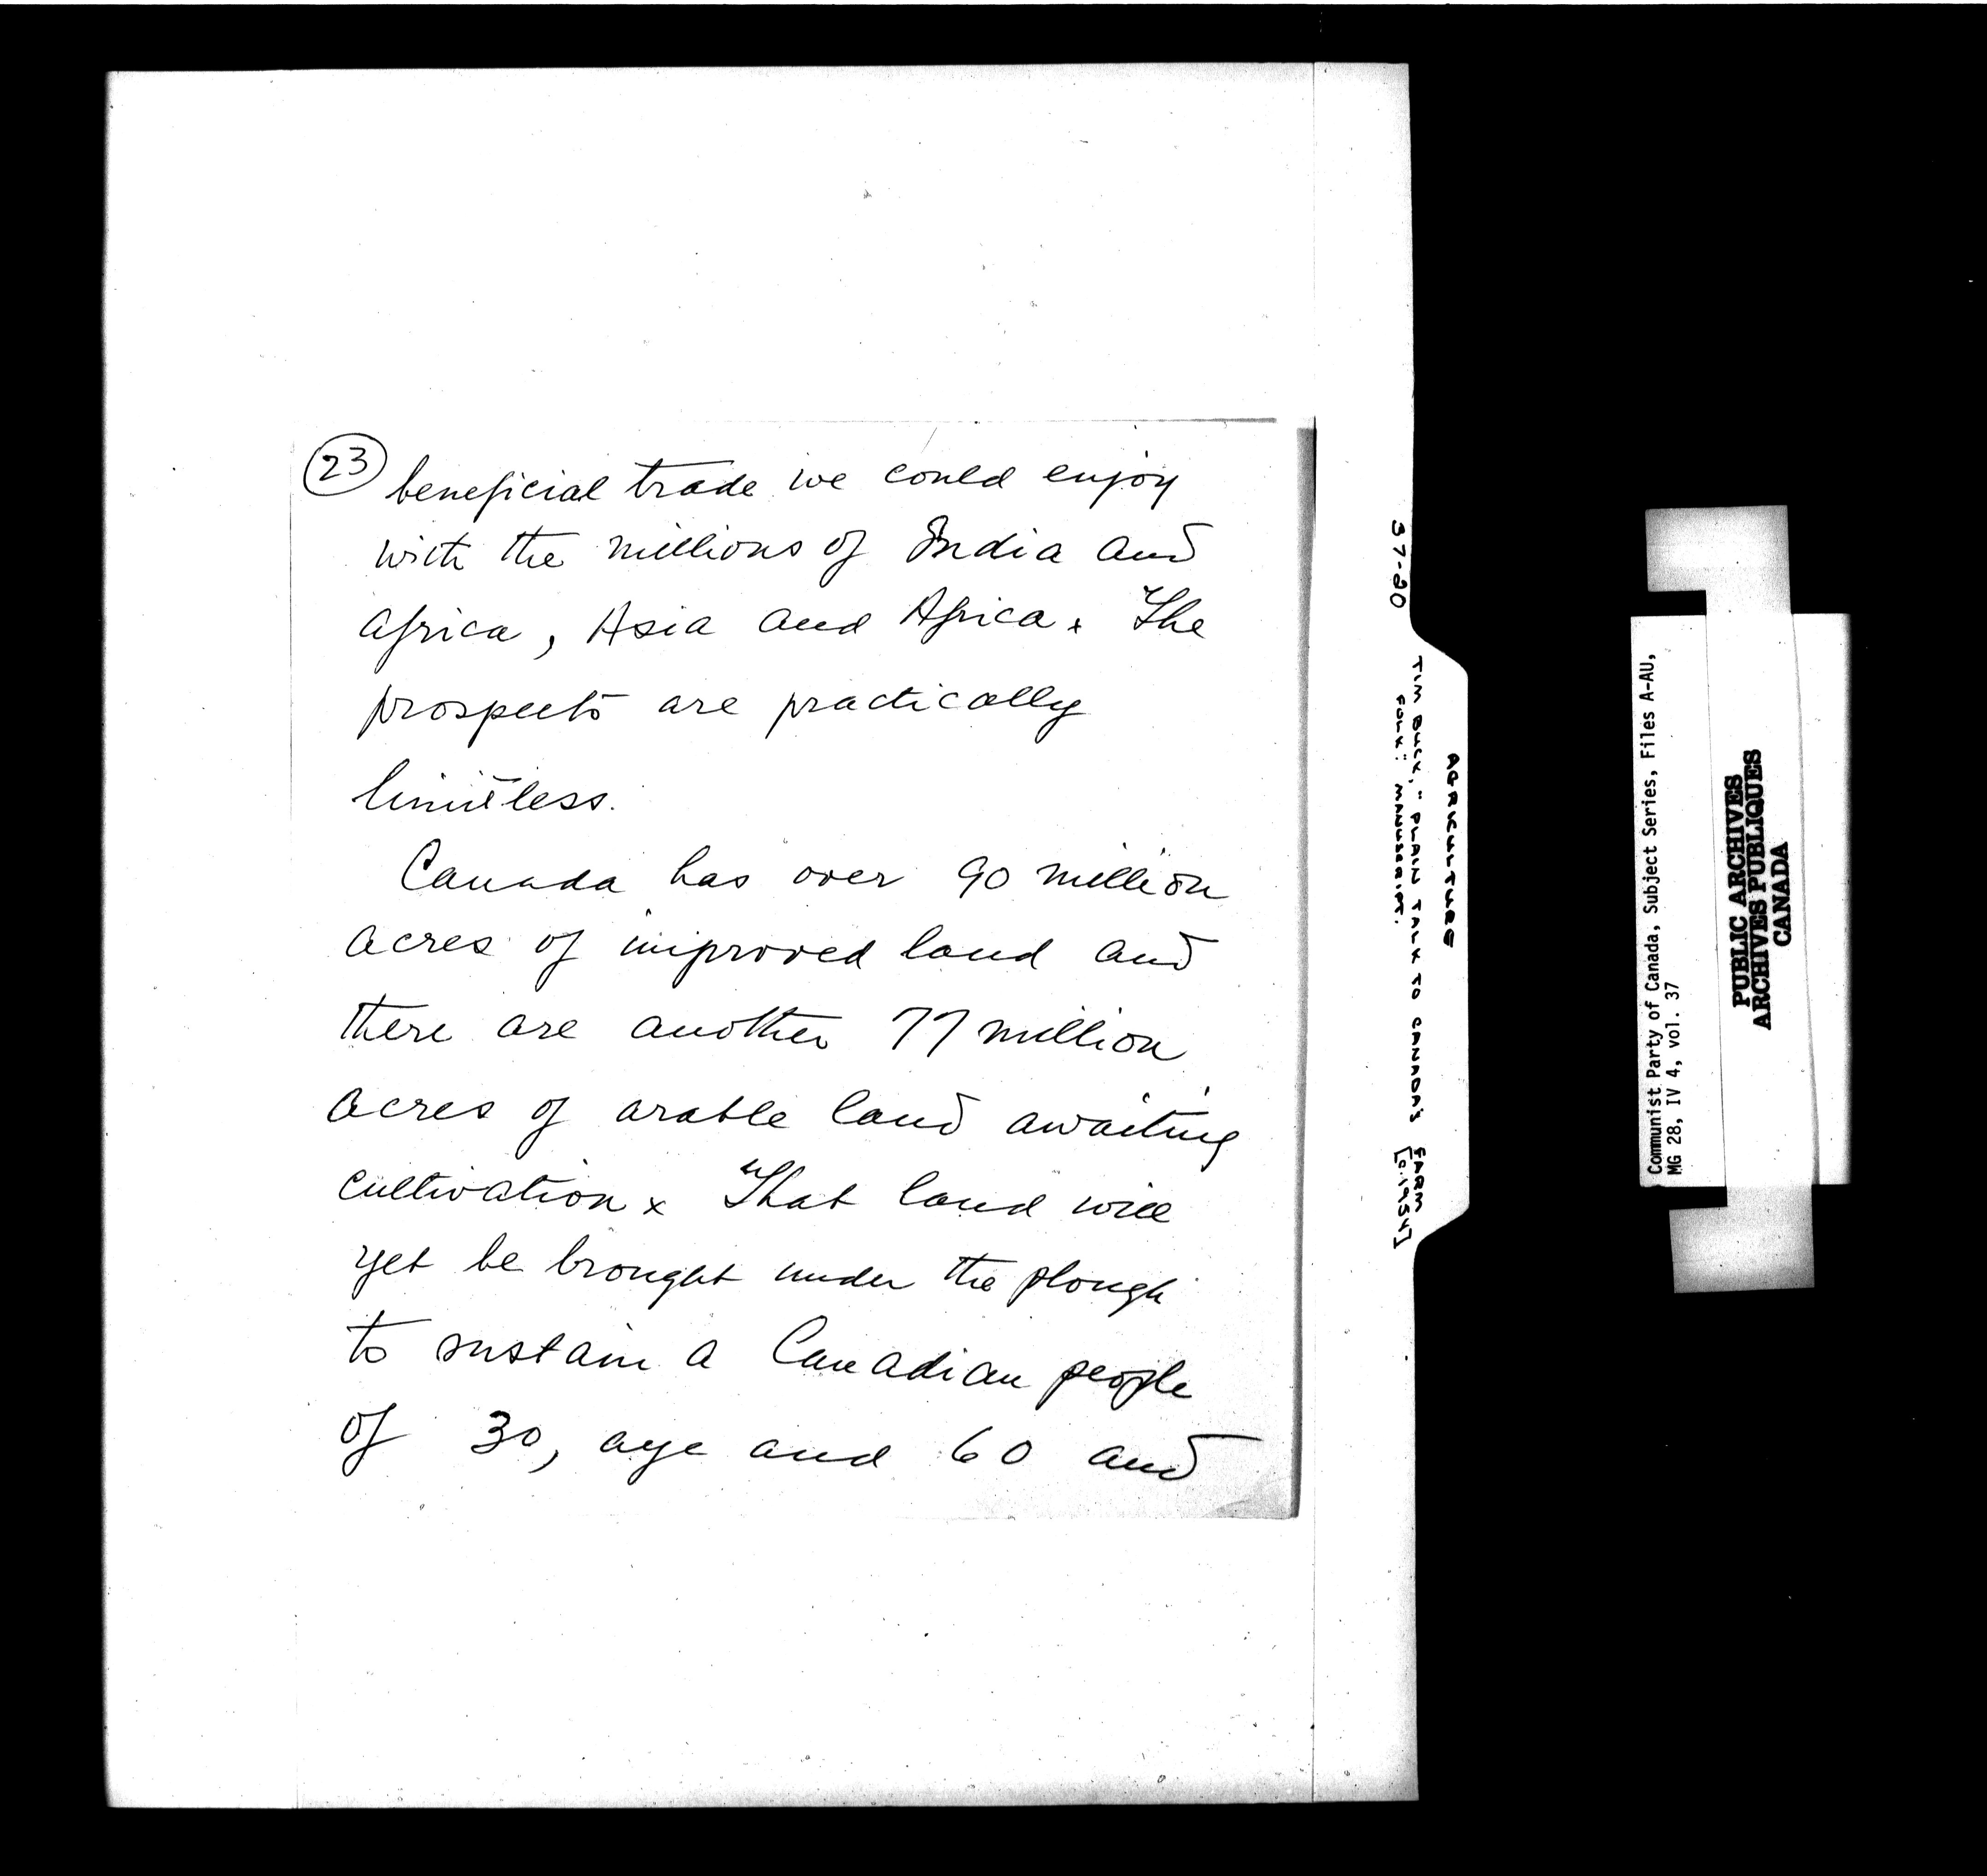 23
beneficial trade we could enjoy
with the millions of India and
africa, Asia and Africa. The
prospects are practically
limitless.
Canada has over 90 million
acres of improved land and
there are another 77 million
acres of arable land awaiting
cultivation x That land will
yet be brought under the plough
to sustain a Canadian people
of 30, aye and 60 and
37-20 TIM BUCK, "PLAIN TALK TO CANADA'S FARM
FOLK: MANUSCRIPT. [c.1954]
AGRICULTURE
Communist Party of Canada, Subject Series, Files A-AU,
MG 28, IV 4, vol. 37
PUBLIC ARCHIVES
ARCHIVES PUBLIQUES
CANADA